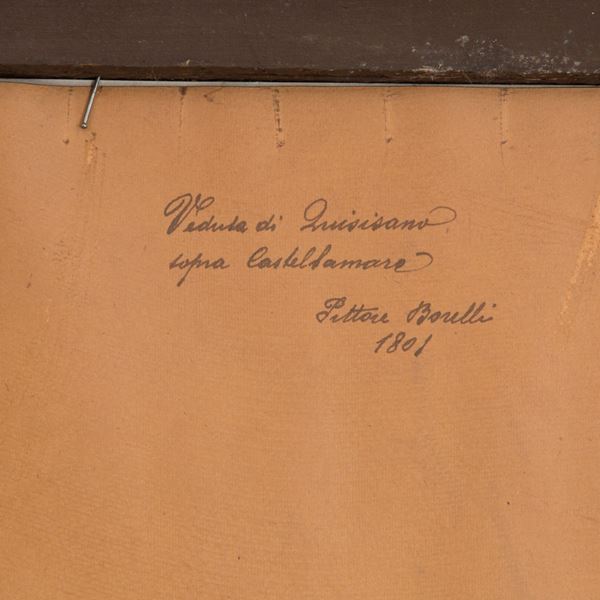 Veduta di Quisisano
sopra Casteltamare
Pittore Borelli
1801